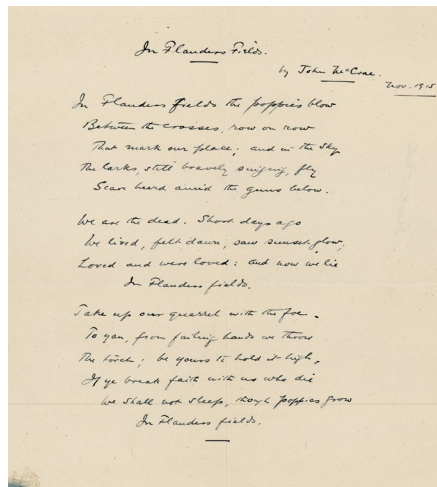 In Flanders Fields.
by John McCrae.
Nov. 1915
In Flanders fields the poppies blow
Between the crosses, row on row
That mark our place; and in the sky
The larks, still bravely singing, fly
Scarce heard amid the guns below.
We are the dead. Short days ago
We lived, felt dawn, saw sunset glow,
Loved and were loved; and now we lie
In Flanders fields.
Take up our quarrel with the foe.
To you, from failing hands we throw
The torch; be yours to hold it high,
If ye break faith with us who die
We shall not sleep, though poppies grow
In Flanders fields.